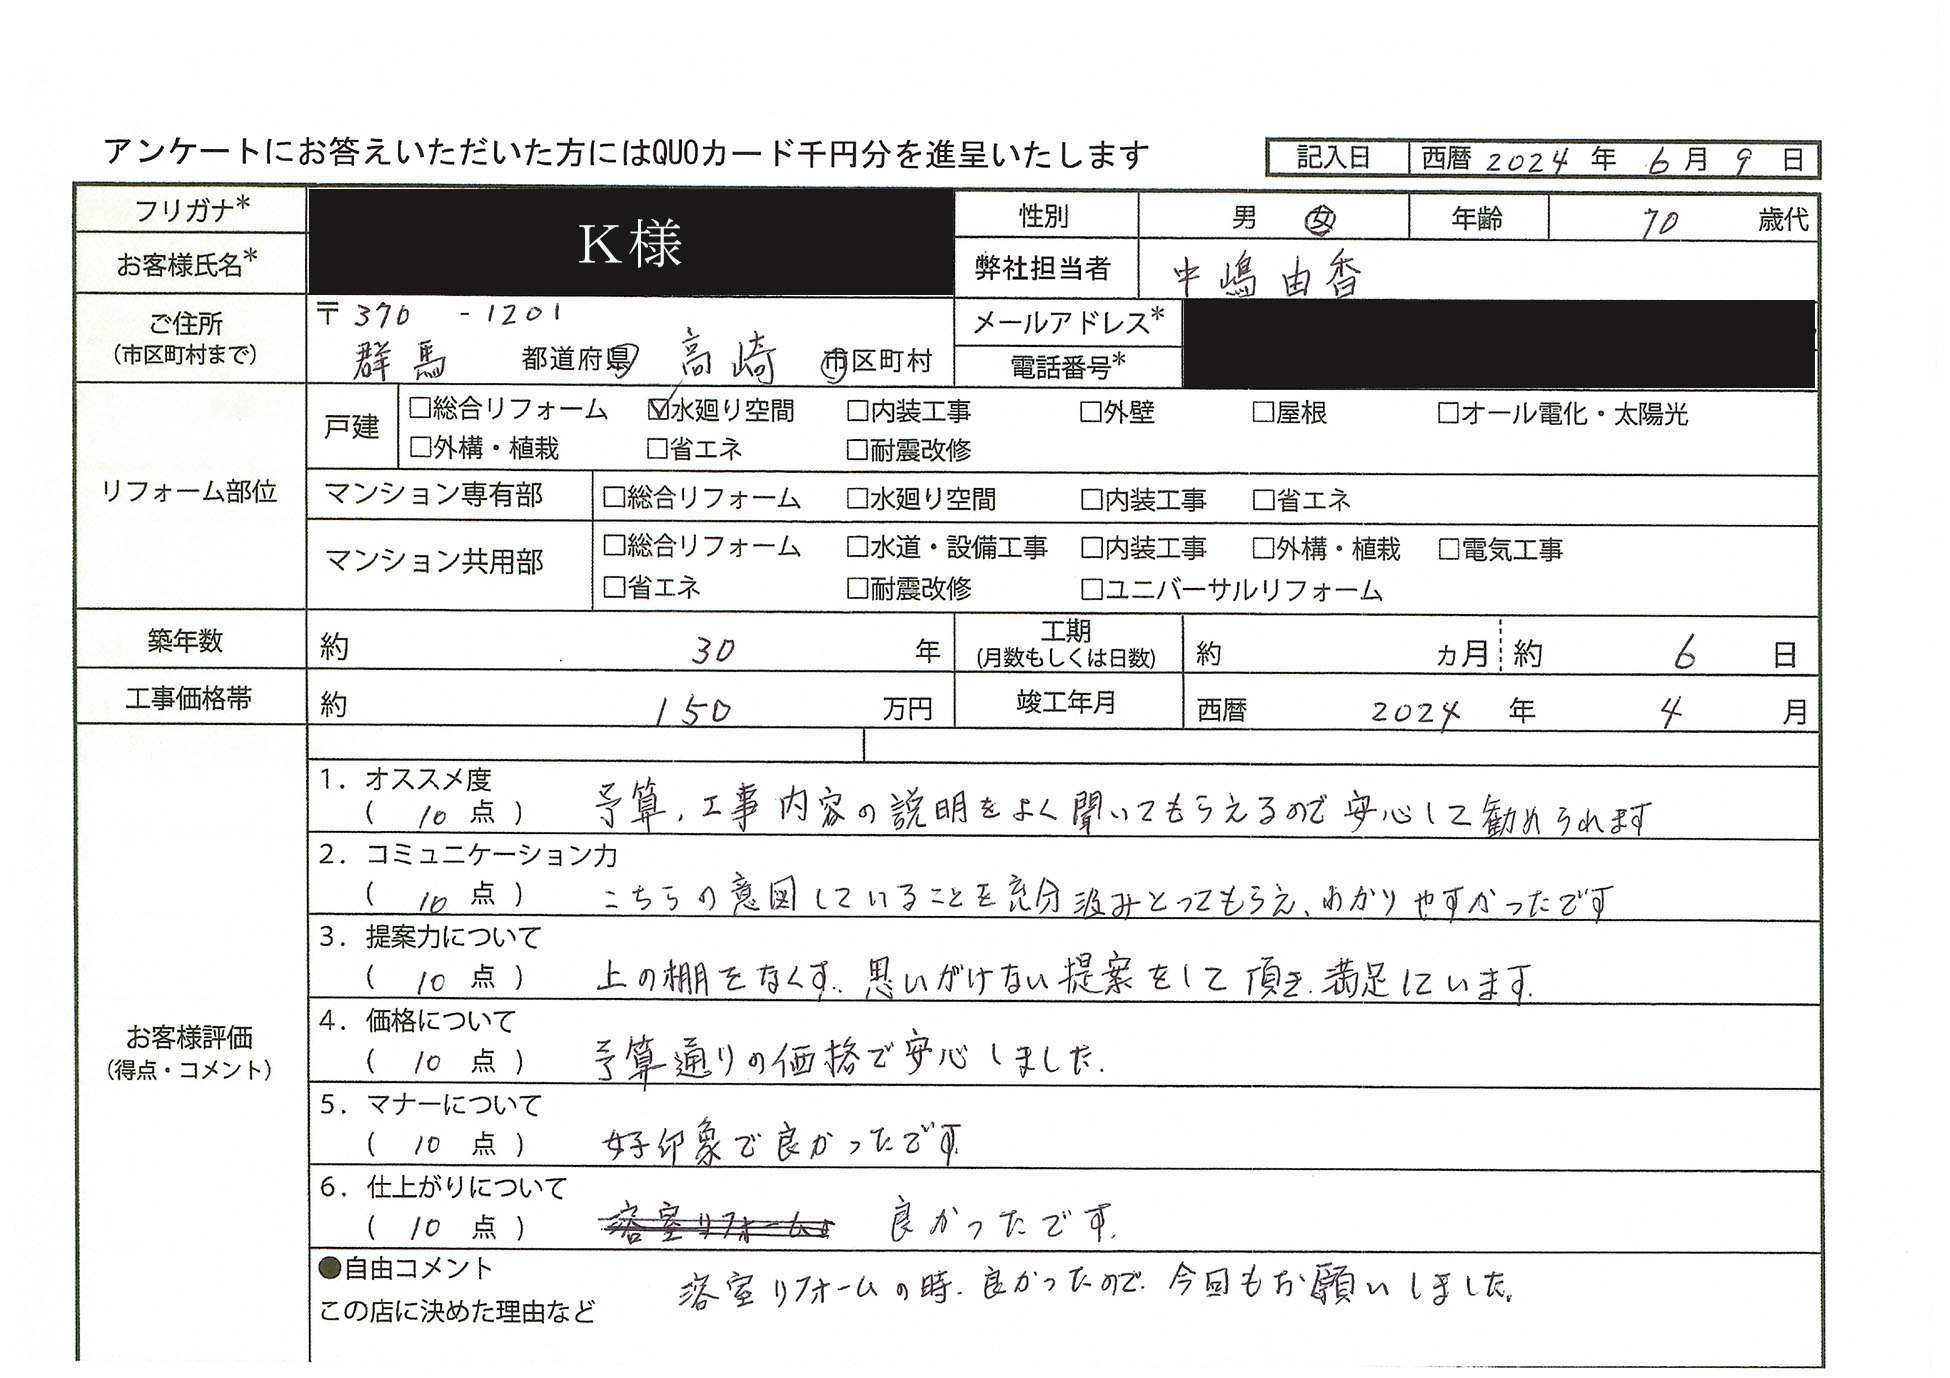 アンケートにお答えいただいた方にはQUOカード千円分を進呈いたします
記入日 西暦 2024 年 6 月 9 日
フリガナ*
お客様氏名*
K様
性別 男 女 年齢 70 歳代
弊社担当者 中嶋 由香
ご住所
(市区町村まで)
〒370 -1201
群馬 都道府県 高崎 市区町村
メールアドレス*
電話番号*
リフォーム部位
戸建
□総合リフォーム ☑水廻り空間 □内装工事 □外壁 □屋根 □オール電化・太陽光
□外構・植栽 □省エネ □耐震改修
マンション専有部 □総合リフォーム □水廻り空間 □内装工事 □省エネ
マンション共用部
□総合リフォーム □水道・設備工事 □内装工事 □外構・植栽 □電気工事
□省エネ □耐震改修 □ユニバーサルリフォーム
築年数 約 30 年
工期
(月数もしくは日数)
約 カ月 約 6 日
工事価格帯 約 150 万円 竣工年月 西暦 2024 年 4 月
お客様評価
(得点・コメント)
1. オススメ度
( 10 点 ) 予算、工事内容の説明をよく聞いてもらえるので安心して勧められます
2. コミュニケーション力
( 10 点 ) こちらの意図していることを充分汲みとってもらえ、わかりやすかったです
3. 提案力について
( 10 点 ) 上の棚をなくす、思いがけない提案をして頂き、満足しています。
4. 価格について
( 10 点 ) 予算通りの価格で安心しました。
5. マナーについて
( 10 点 ) 好印象で良かったです。
6. 仕上がりについて
( 10 点 ) 良かったです。
●自由コメント
この店に決めた理由など
浴室リフォームの時、良かったので、今回もお願いしました。